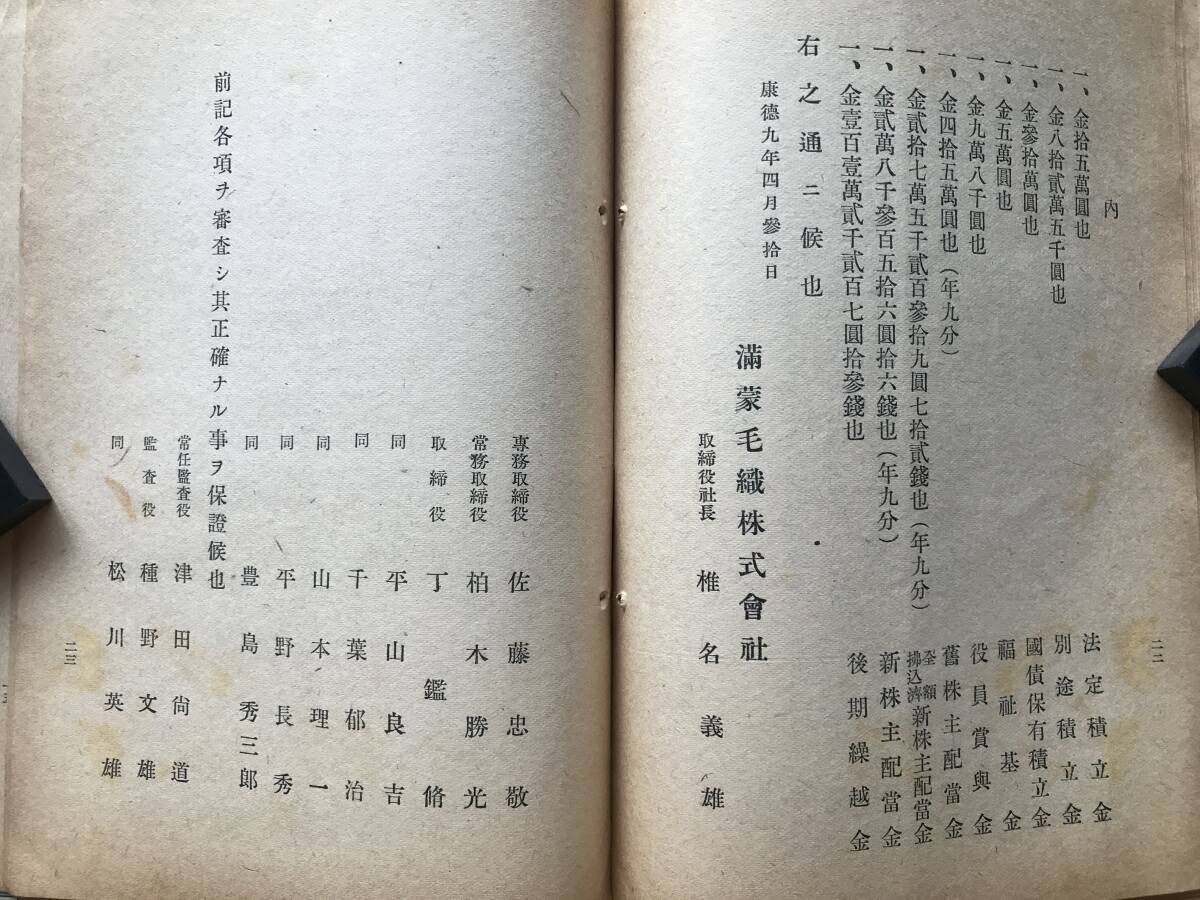 內
一、金拾五萬圓也 法定積立金
一、金八拾貳萬五千圓也 別途積立金
一、金參拾萬圓也 國債保有積立金
一、金五萬圓也 福祉基金
一、金九萬八千圓也 役員賞與金
一、金四拾五萬圓也（年九分） 舊株主配當金
一、金貳拾七萬五千貳百參拾九圓七拾貳錢也（年九分） 全額拂込濟新株主配當金
一、金貳萬八千參百五拾六圓拾六錢也（年九分） 新株主配當金
一、金壹百壹萬貳千貳百七圓拾參錢也 後期繰越金
右之通ニ候也
康德九年四月參拾日
滿蒙毛織株式會社
取締役社長 椎名義雄
二二
專務取締役 佐藤忠敬
常務取締役 柏木勝光
取締役 丁鑑脩
同 平山良吉
同 千葉郁治
同 山本理一
同 平野長秀
同 豊島秀三郎
前記各項ヲ審査シ其正確ナル事ヲ保證候也
常任監査役 津田尙道
監査役 種野文雄
同 松川英雄
二三